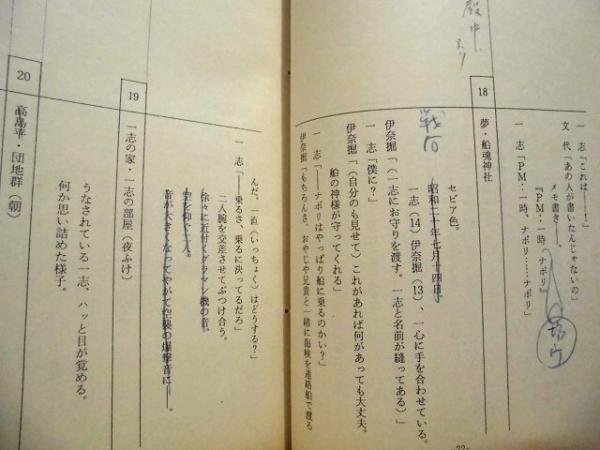 一 志「これは――！」
文 代「あの人が書いたんじゃないの」
メモ書き――。
『PM：一時、ナポリ』
一 志「PM：一時、ナポリ……ナポリ」
18
夢・船魂神社
セピア色。
昭和二十年七月十四日。
一志（14）伊奈掘（13）、一心に手を合わせている。
伊奈掘「（一志にお守りを渡す。一志と名前が縫ってある）」
一 志「僕に？」
伊奈掘「（自分のも見せて）これがあれば何があっても大丈夫。
船の神様が守ってくれる」
一 志「――ナポリはやっぱり船に乗るのかい？」
伊奈掘「もちろんさ、おやじや兄貴と一緒に海峡を連絡船で渡る
んだ。一直（いっちょく）はどうする？」
一 志「――乗るさ、乗るに決ってるだろ」
二人腕を交差させてぶつけ合う。
徐々に近付くグラマン機の音。
空を仰ぐ二人。
音が大きくなってやがて空襲の爆撃音に――。
19
一志の家・一志の部屋（夜ふけ）
うなされている一志、ハッと目が覚める。
何か思い詰めた様子。
20
高島平・団地群（朝）